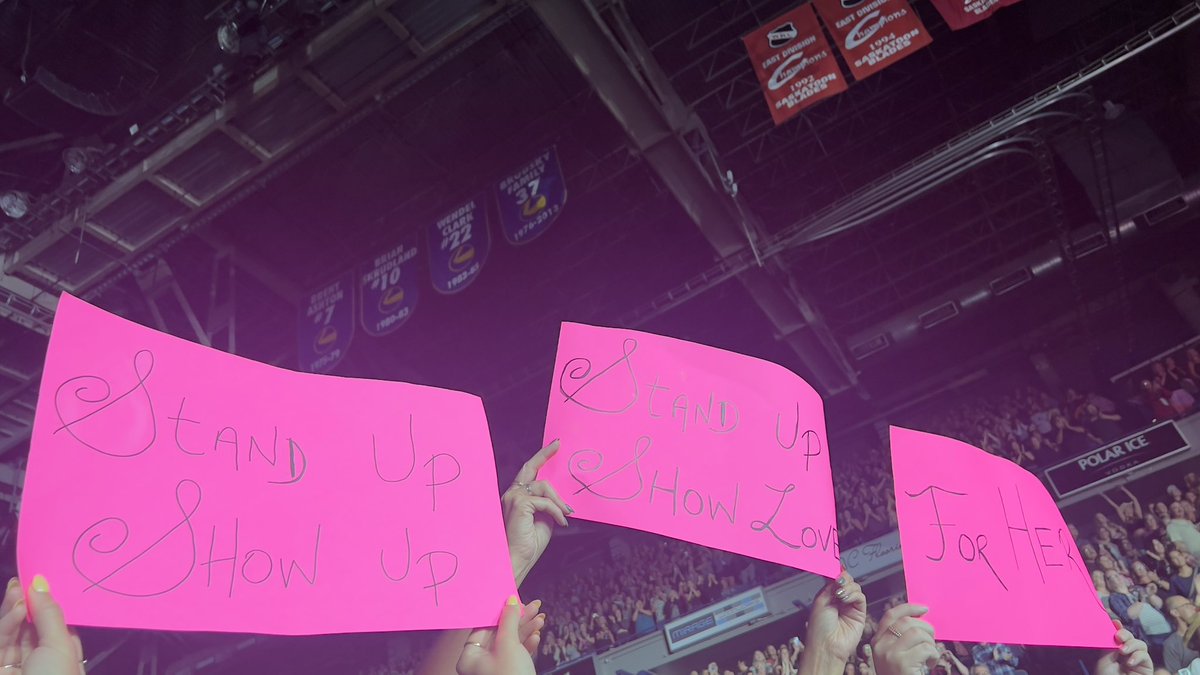 EAST DIVISION
Champions
1992
SASKATOON
BLADES
EAST DIVISION
Champions
1994
SASKATOON
BLADES
BRODSKY
FAMILY
37
1976-2013
WENDEL
CLARK
#22
1983-85
BRIAN
SKRUDLAND
#10
1980-83
BRENT
ASHTON
#7
Stand Up
Show Up
Stand Up
Show Love
For Her
POLAR ICE
VODKA
MIRAGE